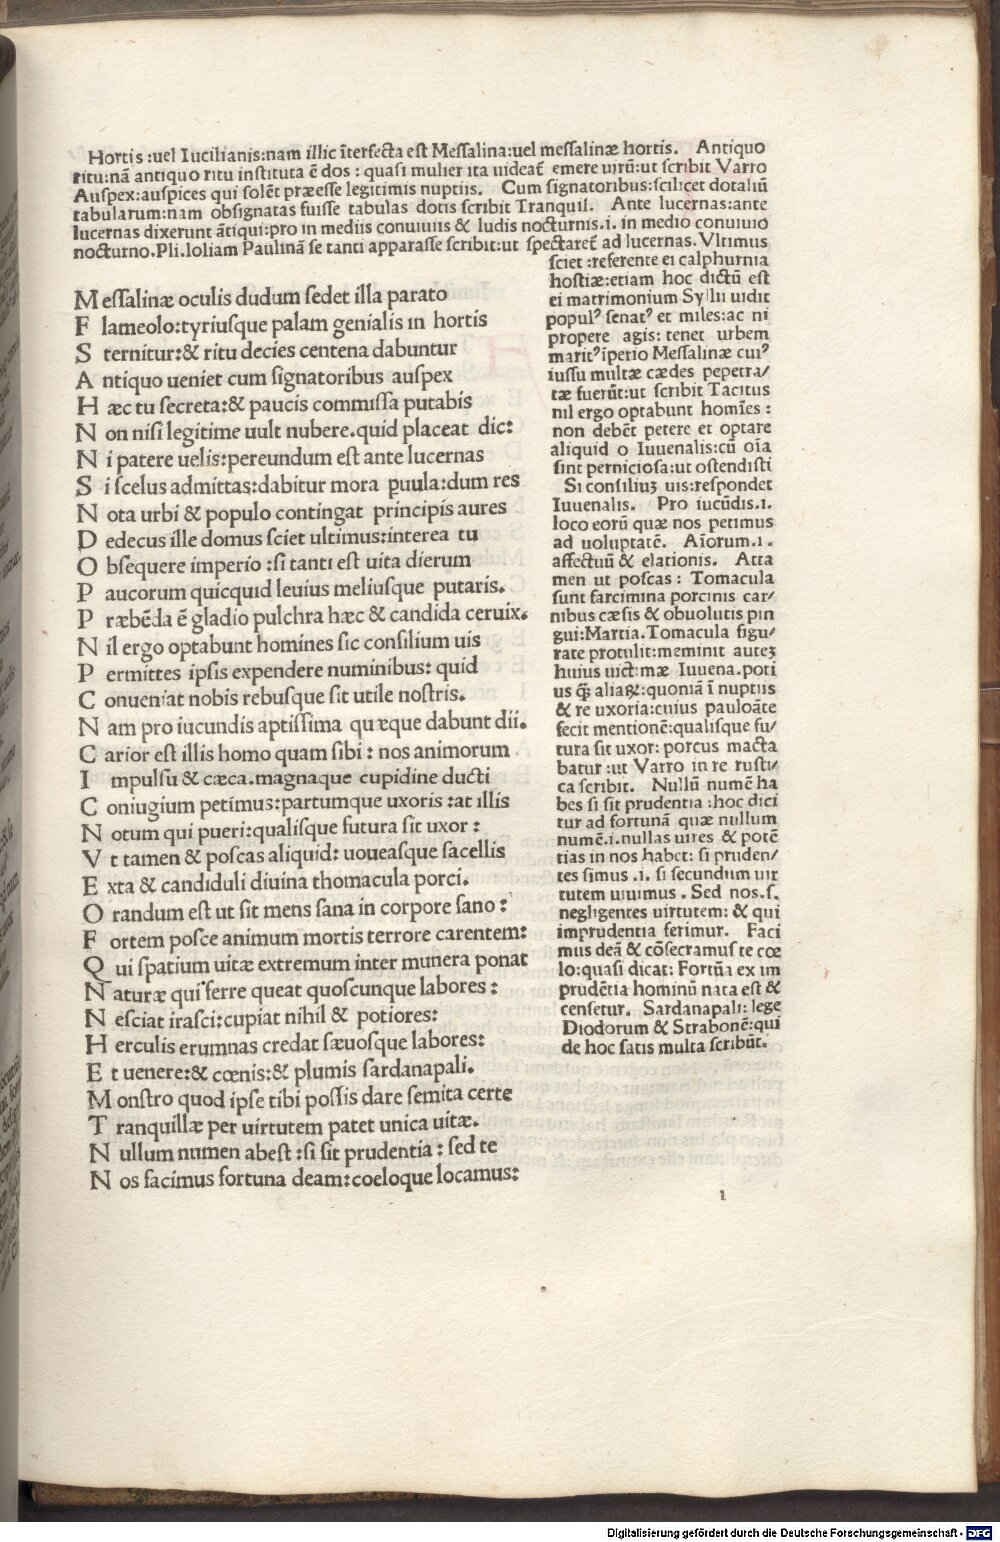 Hortis :uel lucilianis:nam illic ĩterfecta est Messalina:uel messalinæ hortis. Antiquo
ritu:nã antiquo ritu instituta ẽ dos : quasi mulier ita uideat̃ emere uirũ:ut scribit Varro
Auspex:auspices qui solẽt præesse legitimis nuptiis. Cum signatoribus:scilicet dotaliũ
tabularum:nam obsignatas fuisse tabulas dotis scribit Tranquil. Ante lucernas:ante
lucernas dixerunt ãtiqui:pro in mediis conuiuiis & ludis nocturnis.i. in medio conuiuio
nocturno.Pli.loliam Paulinã se tanti apparasse scribit:ut spectaret̃ ad lucernas. Vltimus
sciet :referente ei calphurnia
hostiæ:etiam hoc dictũ est
ei matrimonium Syllii uidit
popul⁹ senat⁹ et miles:ac ni
propere agis: tenet urbem
marit⁹ ĩperio Messalinæ cui⁹
iussu multæ cædes pepetra/
tæ fuerũt:ut scribit Tacitus
nil ergo optabunt homĩes :
non debẽt petere et optare
aliquid o Iuuenalis:cũ oĩa
sint perniciosa:ut ostendisti
Si consiliuꝫ uis:respondet
Iuuenalis. Pro iucũdis.i.
loco eorũ quæ nos petimus
ad uoluptatẽ. Aĩorum.i.
affectuũ & elationis. Atta
men ut poscas : Tomacula
sunt farcimina porcinis car/
nibus cæsis & obuolutis pin
gui:Martia. Tomacula figu/
rate protulit:meminit auteꝫ
huius uictimæ Iuuena.poti
us q̃ꝫ aliaꝝ:quoniã ĩ nuptiis
& re uxoria:cuius pauloãte
fecit mentionẽ:qualisque fu/
tura sit uxor: porcus macta
batur :ut Varro in re rusti/
ca scribit. Nullũ numẽ ha
bes si sit prudentia :hoc dici
tur ad fortunã quæ nullum
numẽ.i.nullas uires & potẽ
tias in nos habet: si pruden/
tes simus .i. si secundum uir
tutem uiuimus . Sed nos.s.
negligentes uirtutem: & qui
imprudentia ferimur. Faci
mus deã & cõsecramus te cœ
lo:quasi dicat: Fortũa ex im
prudẽtia hominũ nata est &
censetur. Sardanapali: lege
Diodorum & Strabonẽ:qui
de hoc satis multa scribũt.
M essalinæ oculis dudum sedet illa parato
F lameolo:tyriusque palam genialis in hortis
S ternitur:& ritu decies centena dabuntur
A ntiquo ueniet cum signatoribus auspex
H æc tu secreta:& paucis commissa putabis
N on nisi legitime uult nubere.quid placeat dic:
N i patere uelis:pereundum est ante lucernas
S i scelus admittas:dabitur mora puula:dum res
N ota urbi & populo contingat principis aures
D edecus ille domus sciet ultimus:interea tu
O bsequere imperio :si tanti est uita dierum
P aucorum quicquid leuius meliusque putaris.
P ræbẽda ẽ gladio pulchra hæc & candida ceruix.
N il ergo optabunt homines sic consilium uis
P ermittes ipsis expendere numinibus: quid
C onueniat nobis rebusque sit utile nostris.
N am pro iucundis aptissima quæque dabunt dii.
C arior est illis homo quam sibi : nos animorum
I mpulsu & cæca.magnaque cupidine ducti
C oniugium petimus:partumque uxoris :at illis
N otum qui pueri:qualisque futura sit uxor :
V t tamen & poscas aliquid: uoueasque sacellis
E xta & candiduli diuina thomacula porci.
O randum est ut sit mens sana in corpore sano :
F ortem posce animum mortis terrore carentem:
Q ui spatium uitæ extremum inter munera ponat
N aturæ qui ferre queat quoscunque labores :
N esciat irasci:cupiat nihil & potiores:
H erculis erumnas credat sæuosque labores:
E t uenere:& cœnis:& plumis sardanapali.
M onstro quod ipse tibi possis dare semita certe
T ranquillæ per uirtutem patet unica uitæ.
N ullum numen abest :si sit prudentia : sed te
N os facimus fortuna deam:coeloque locamus:
l
Digitalisierung gefördert durch die Deutsche Forschungsgemeinschaft - DFG